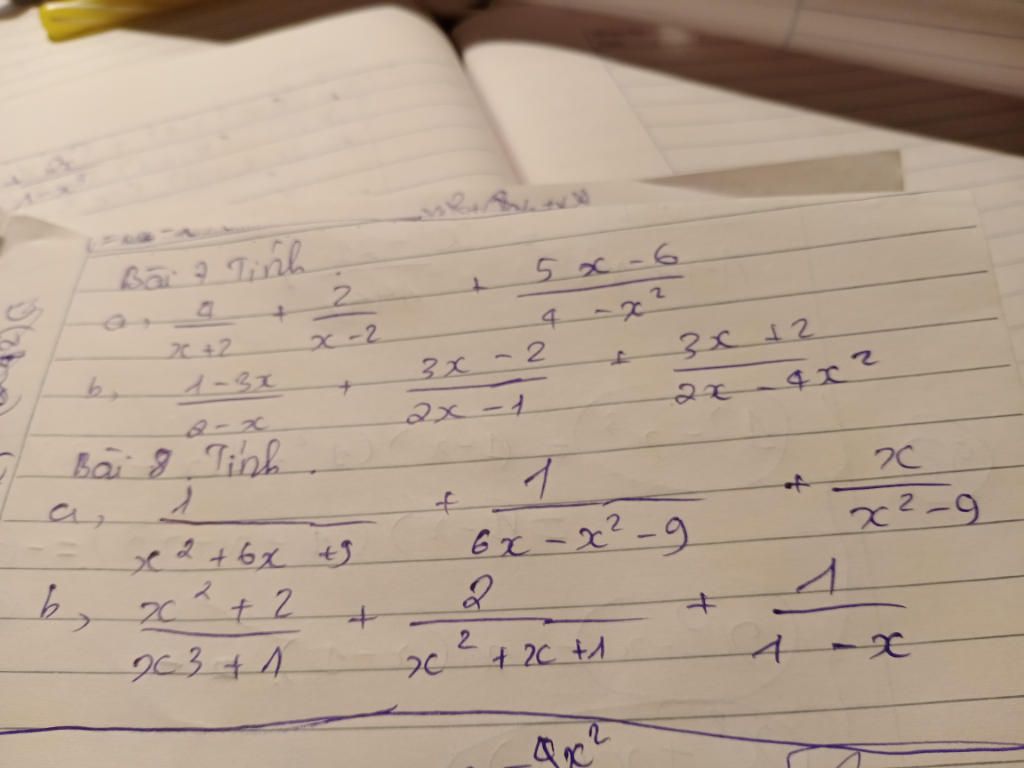 Bài 7 Tính.
a, 4/(x+2) + 2/(x-2) + (5x-6)/(4-x²)
b, (1-3x)/(2-x) + (3x-2)/(2x-1) + (3x+2)/(2x-4x²)
Bài 8 Tính.
a, 1/(x²+6x+9) + 1/(6x-x²-9) + x/(x²-9)
b, (x²+2)/(x3+1) + 2/(x²+x+1) + 1/(1-x)